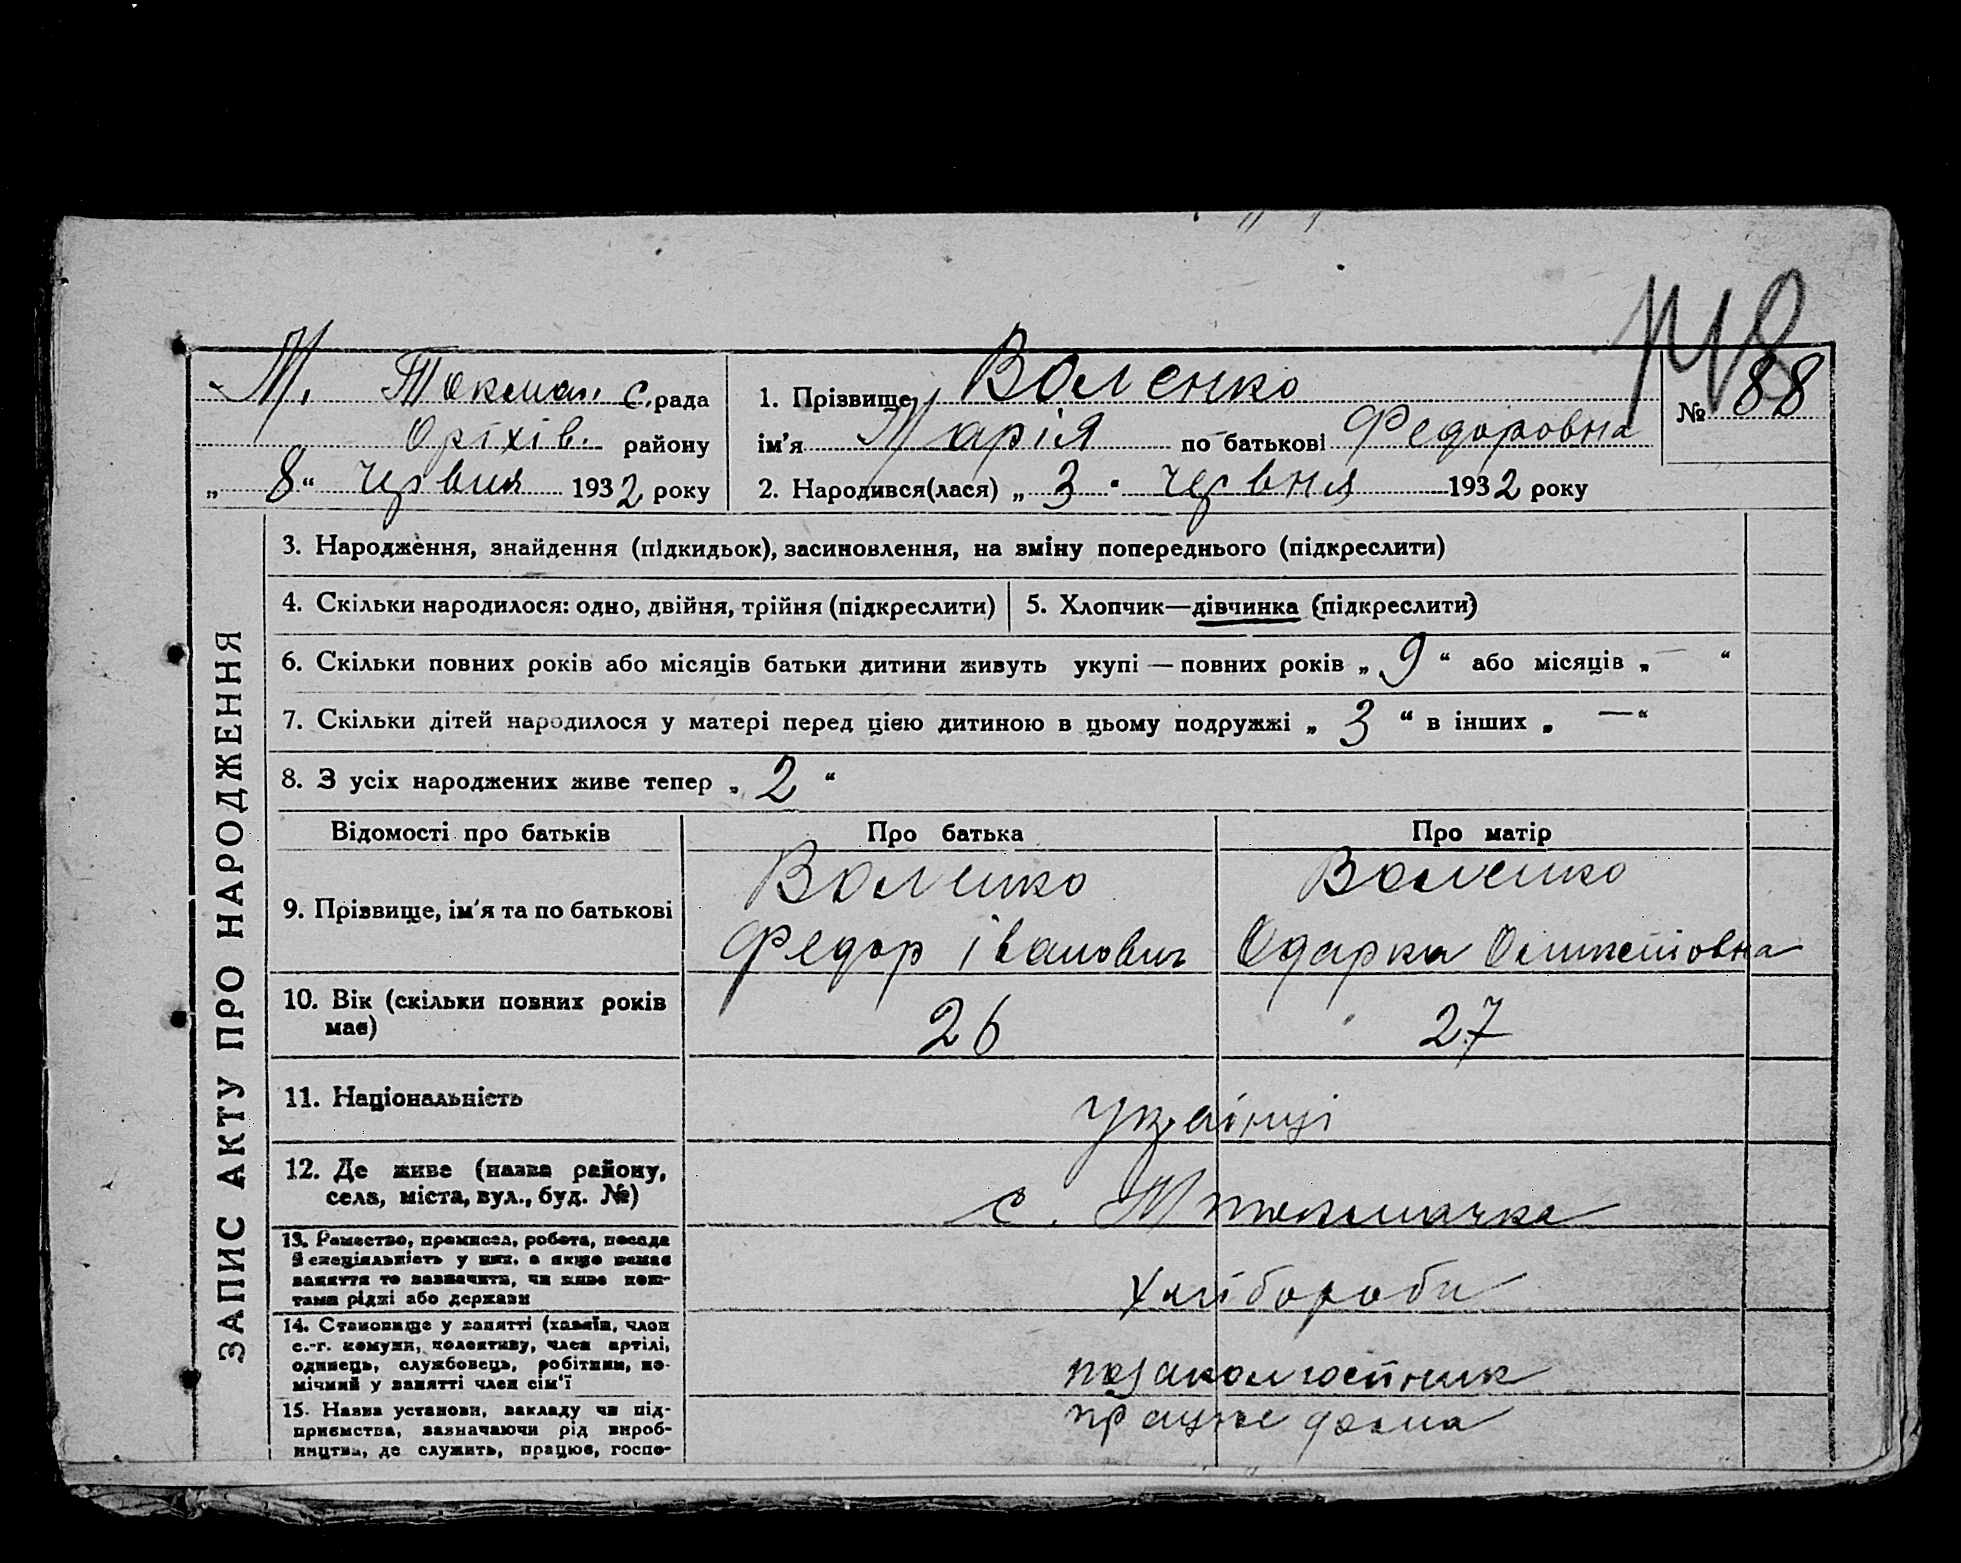 М. Токмач. с. рада
Оріхів. району
„ 8 “ червня 1932 року
1. Прізвище Воленко
№ 88
ім'я Марія по батькові Федоровна
2. Народився(лася) „ 3 “ червня 1932 року
ЗАПИС АКТУ ПРО НАРОДЖЕННЯ
3. Народження, знайдення (підкидьок), засиновлення, на зміну попереднього (підкреслити)
4. Скільки народилося: одно, двійня, трійня (підкреслити)
5. Хлопчик—дівчинка (підкреслити)
6. Скільки повних років або місяців батьки дитини живуть укупі — повних років „ 9 “ або місяців „ — “
7. Скільки дітей народилося у матері перед цією дитиною в цьому подружжі „ 3 “ в інших „ — “
8. З усіх народжених живе тепер „ 2 “
Відомості про батьків
Про батька
Про матір
9. Прізвище, ім'я та по батькові
Воленко
Федор Іванович
Воленко
Одарка
10. Вік (скільки повних років
має)
26
27
11. Національність
українці
12. Де живе (назва району,
села, міста, вул., буд. №)
с. М токмачка
13. Ремество, промисел, робота, посада
й спеціяльність у них, а якщо немає
заняття то зазначити, чи живе кош-
тами рідні або держави
хлібороби
14. Становище у занятті (хазяїн, член
с.-г. комуни, колективу, член артілі,
одинець, службовець, робітник, по-
мічний у занятті член сім'ї
позаколгоспник
15. Назва установи, закладу чи під-
приємства, зазначаючи рід вироб-
ництва, де служить, працює, госпо-
працює дома